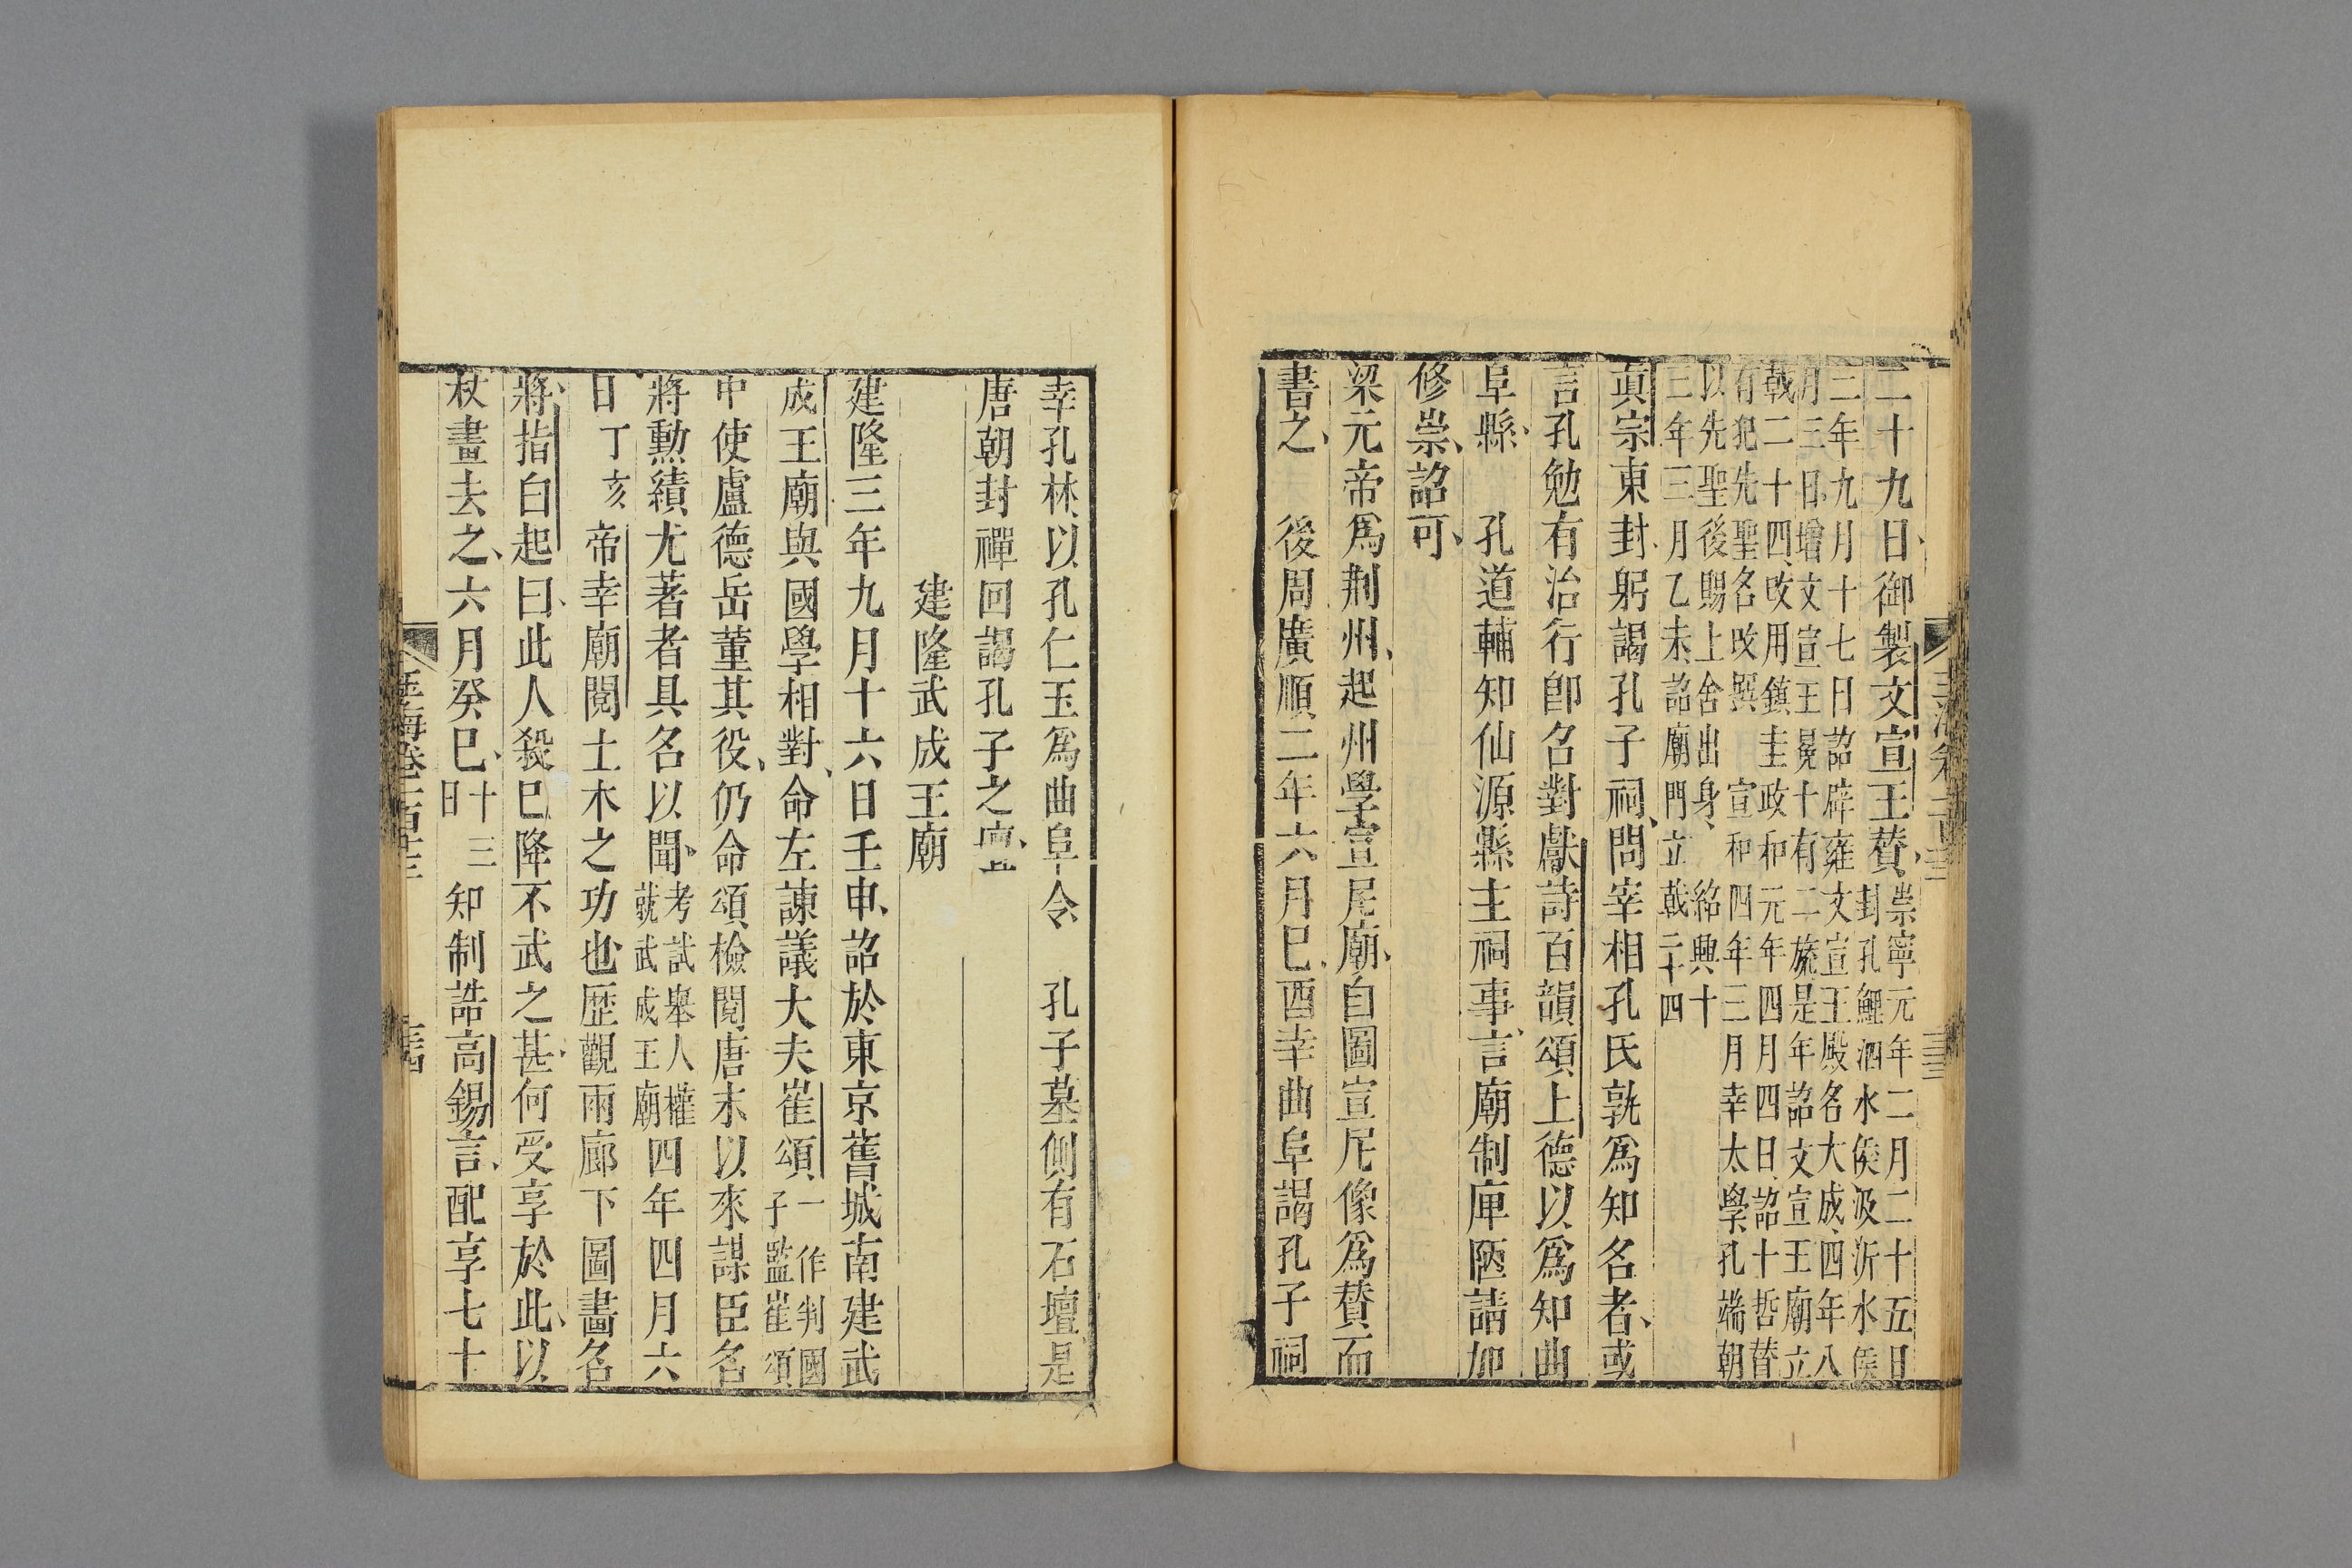 二十九日御製文宣王贊崇寧元年二月二十五日
封孔鯉泗水侯伋沂水侯
三年九月十七日詔辟雍文宣王殿名大成四年八
月三日增文宣王冕十有二旒是年詔文宣王廟立
戟二十四改用鎮圭政和元年四月四日詔十哲贊
有犯先聖名改撰　宣和四年三月幸太學孔端朝
以先聖後賜上舍出身　紹興十
三年三月乙未詔廟門立戟二十四
眞宗東封躬謁孔子祠問宰相孔氏孰爲知名者或
言孔勉有治行卽召對獻詩百韻頌上德以爲知曲
阜縣　孔道輔知仙源縣主祠事言廟制庳陋請加
修崇詔可
梁元帝爲荆州起州學宣尼廟自圖宣尼像爲贊而
書之　後周廣順二年六月巳酉幸曲阜謁孔子祠
幸孔林以孔仁玉爲曲阜令　孔子墓側有石壇是
唐朝封禪回謁孔子之壇
建隆武成王廟
建隆三年九月十六日壬申詔於東京舊城南建武
成王廟與國學相對命左諫議大夫崔頌一作判國
子監崔頌
中使盧德岳董其役仍命頌檢閱唐末以來謀臣名
將勳績尤著者具名以聞考試舉人權
就武成王廟四年四月六
日丁亥帝幸廟閱土木之功也歴觀兩廊下圖畫名
將指白起曰此人殺巳降不武之甚何受享於此以
杖畫去之六月癸巳十三
日知制誥高錫言配享七十
玉海卷一百十三